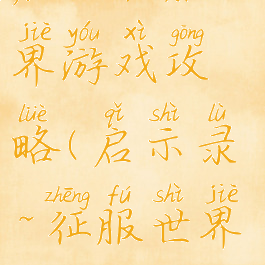 jiè yóu xì gōng
界游戏攻
lüè qǐ shì lù
略(启示录
zhēng fú shì jiè
~征服世界